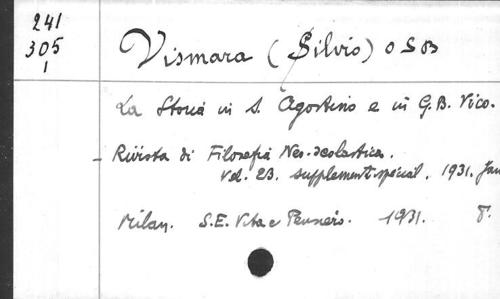 241
305
1
Vismara (Silvio) OSB
La Storia in S. Agostino e in G.B. Vico.
- Rivista di Filosofia Neo-scolastica.
Vol. 23. supplement spécial. 1931. Jan
Milan. S.E. Vita e Pensiero. 1931. 8.